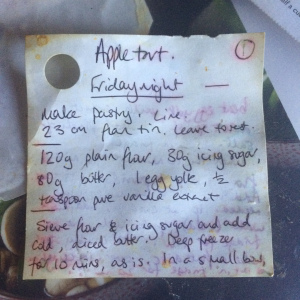 Apple tart.
1
Friday night
Make pastry. Line
23 cm flan tin, leave to rest.
120g plain flour, 30g icing sugar,
80g butter, 1 egg yolk, ½
teaspoon pure vanilla extract
Sieve flour & icing sugar and add
cold, diced butter. Deep freeze
for 10 mins, as is. In a small bowl,